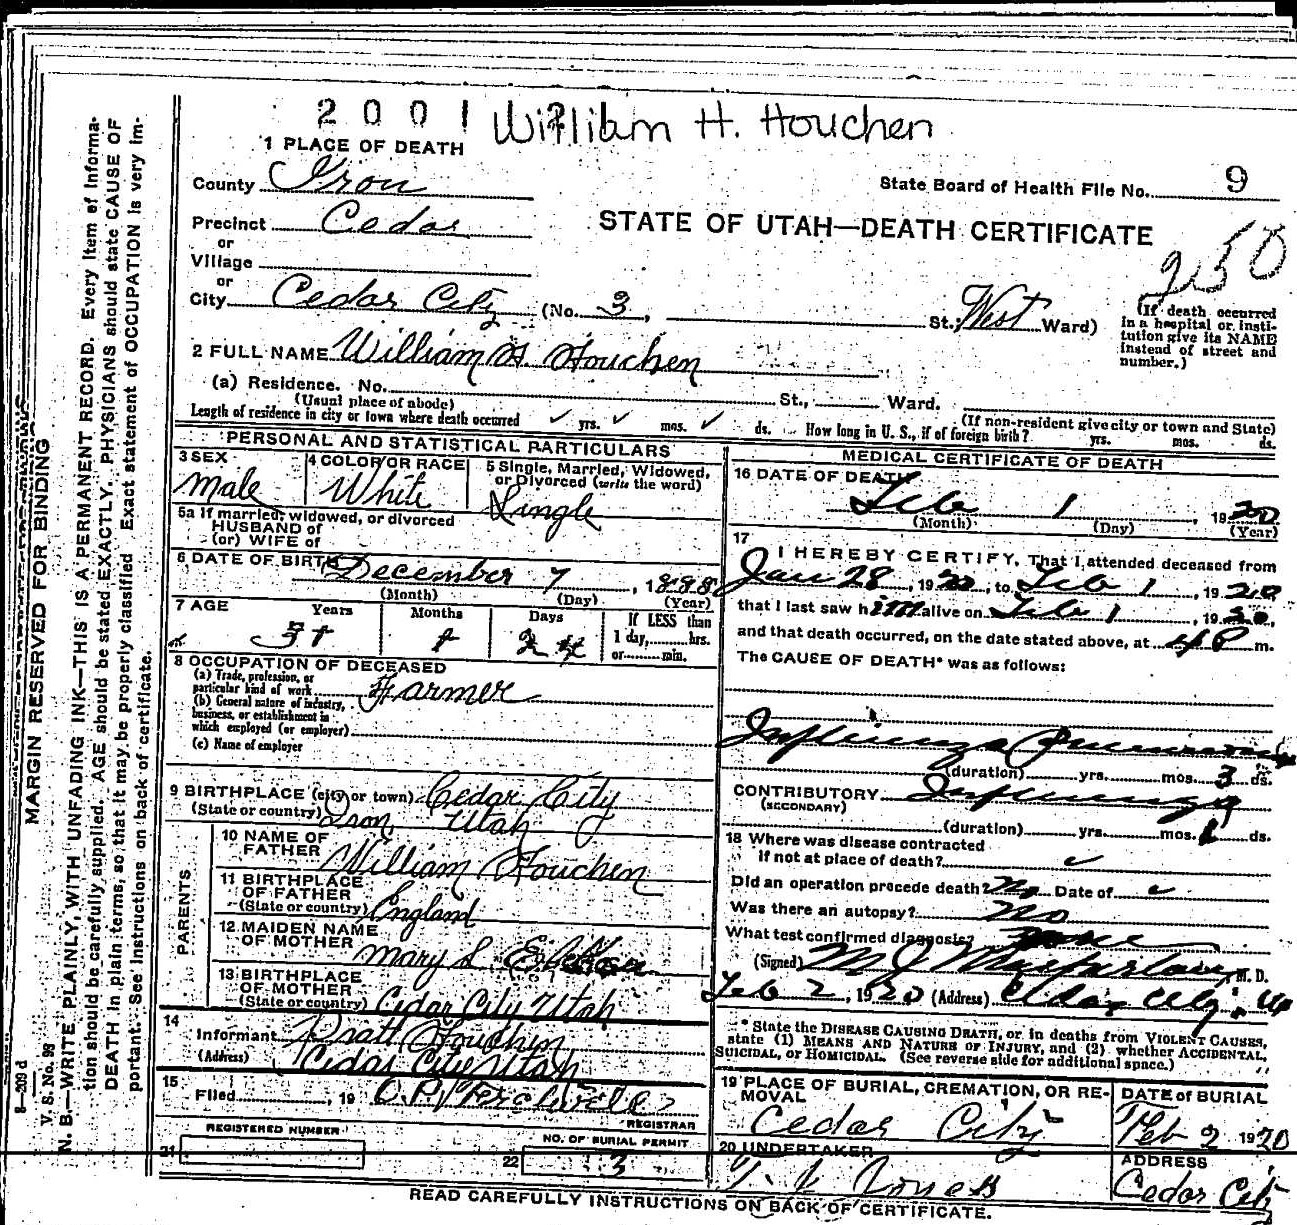 2001 William H. Houchen
1 PLACE OF DEATH
County Iron
State Board of Health File No. 9
Precinct Cedar
STATE OF UTAH—DEATH CERTIFICATE
250
or
Village
or
City Cedar City (No. 3, St.; West Ward)
(If death occurred
in a hospital or insti-
tution give its NAME
instead of street and
number.)
2 FULL NAME William H. Houchen
(a) Residence. No. St., Ward.
(Usual place of abode) (If non-resident give city or town and State)
Length of residence in city or town where death occurred ✓ yrs. ✓ mos. ✓ ds. How long in U. S., if of foreign birth? yrs. mos. ds.
PERSONAL AND STATISTICAL PARTICULARS
3 SEX 4 COLOR OR RACE 5 Single, Married, Widowed,
or Divorced (write the word)
Male White Single
5a If married, widowed, or divorced
HUSBAND of
(or) WIFE of
6 DATE OF BIRTH December 7, 1898
(Month) (Day) (Year)
7 AGE Years Months Days If LESS than
1 day, hrs.
or min.
8 OCCUPATION OF DECEASED
(a) Trade, profession, or
particular kind of work Farmer
(b) General nature of industry,
business, or establishment in
which employed (or employer)
(c) Name of employer
9 BIRTHPLACE (city or town) Cedar City
(State or country) Iron Utah
PARENTS
10 NAME OF
FATHER William Houchen
11 BIRTHPLACE
OF FATHER
(State or country) England
12 MAIDEN NAME
OF MOTHER Mary L
13 BIRTHPLACE
OF MOTHER
(State or country) Cedar City Utah
14
Informant Pratt Houchen
(Address) Cedar City Utah
15
Filed , 19
REGISTRAR
REGISTERED NUMBER
21
NO. OF BURIAL PERMIT
22 3
MEDICAL CERTIFICATE OF DEATH
16 DATE OF DEATH
Feb 1, 1920
(Month) (Day) (Year)
17
I HEREBY CERTIFY, That I attended deceased from
Jan 28, 1920, to Feb 1, 1920
that I last saw him alive on Feb 1, 1920,
and that death occurred, on the date stated above, at 4 P m.
The CAUSE OF DEATH* was as follows:
Influenza Pneumonia
(duration) yrs. mos. 3 ds.
CONTRIBUTORY Influenza
(SECONDARY)
(duration) yrs. mos. ds.
18 Where was disease contracted
if not at place of death? ✓
Did an operation precede death? No Date of ✓
Was there an autopsy? No
What test confirmed diagnosis? None
(Signed) M J Macfarlane, M. D.
Feb 2, 1920 (Address) Cedar City, Ut
* State the DISEASE CAUSING DEATH, or, in deaths from VIOLENT CAUSES,
state (1) MEANS AND NATURE OF INJURY, and (2) whether ACCIDENTAL,
SUICIDAL, or HOMICIDAL. (See reverse side for additional space.)
19 PLACE OF BURIAL, CREMATION, OR RE-
MOVAL
Cedar City
DATE of BURIAL
Feb 2 1920
20 UNDERTAKER
Jones
ADDRESS
Cedar City
READ CAREFULLY INSTRUCTIONS ON BACK OF CERTIFICATE.
MARGIN RESERVED FOR BINDING
V. S. No. 98
N. B.—WRITE PLAINLY, WITH UNFADING INK—THIS IS A PERMANENT RECORD. Every item of informa-
tion should be carefully supplied. AGE should be stated EXACTLY. PHYSICIANS should state CAUSE OF
DEATH in plain terms, so that it may be properly classified. Exact statement of OCCUPATION is very im-
portant. See instructions on back of certificate.